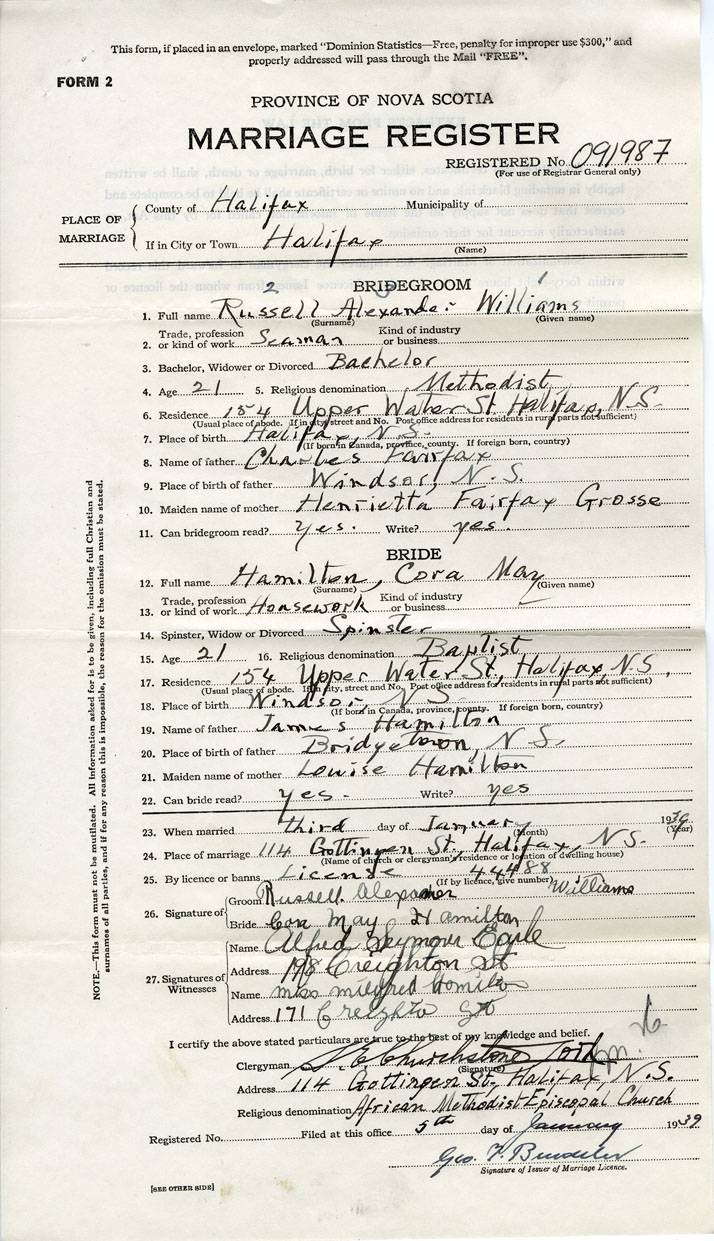 This form, if placed in an envelope, marked "Dominion Statistics—Free, penalty for improper use $300," and
properly addressed will pass through the Mail "FREE".
FORM 2
PROVINCE OF NOVA SCOTIA
MARRIAGE REGISTER
REGISTERED No. 091987
(For use of Registrar General only)
PLACE OF MARRIAGE
County of Halifax Municipality of
If in City or Town Halifax
(Name)
BRIDEGROOM
2 3 1
1. Full name Russell Alexander Williams
(Surname) (Given name)
2. Trade, profession or kind of work Seaman Kind of industry or business
3. Bachelor, Widower or Divorced Bachelor
4. Age 21 5. Religious denomination Methodist
6. Residence 154 Upper Water St. Halifax, N.S.
(Usual place of abode. If in city, street and No. Post office address for residents in rural parts not sufficient)
7. Place of birth Halifax, N.S.
(If born in Canada, province, county. If foreign born, country)
8. Name of father Charles Fairfax
9. Place of birth of father Windsor, N.S.
10. Maiden name of mother Henrietta Fairfax Grosse
11. Can bridegroom read? yes. Write? yes.
BRIDE
12. Full name Hamilton, Cora May
(Surname) (Given name)
13. Trade, profession or kind of work Housework Kind of industry or business
14. Spinster, Widow or Divorced Spinster
15. Age 21 16. Religious denomination Baptist
17. Residence 154 Upper Water St, Halifax, N.S,
(Usual place of abode. If in city, street and No. Post office address for residents in rural parts not sufficient)
18. Place of birth Windsor, N.S.
(If born in Canada, province, county. If foreign born, country)
19. Name of father James Hamilton
20. Place of birth of father Bridgetown, N.S.
21. Maiden name of mother Louise Hamilton
22. Can bride read? yes. Write? yes
23. When married third day of January 19
(Month) (Year)
24. Place of marriage 114 Gottingen St, Halifax, N.S.
(Name of church or clergyman's residence or location of dwelling house)
25. By licence or banns License 44488
(If by licence, give number)
26. Signature of
Groom Russell Alexander Williams
Bride Cora May Hamilton
27. Signatures of Witnesses
Name Alfred Seymour
Address 198 Creighton St
Name miss mildred Hamilton
Address 171 Creighto St
I certify the above stated particulars are true to the best of my knowledge and belief.
Clergyman
(Signature)
Address 114 Gottingen St, Halifax, N.S.
Religious denomination African Methodist Episcopal Church
Registered No. Filed at this office 5th day of January 1939
Geo. F.
Signature of Issuer of Marriage Licence.
[SEE OTHER SIDE]
NOTE.—This form must not be mutilated. All information asked for is to be given, including full Christian and
surnames of all parties, and if for any reason this is impossible, the reason for the omission must be stated.